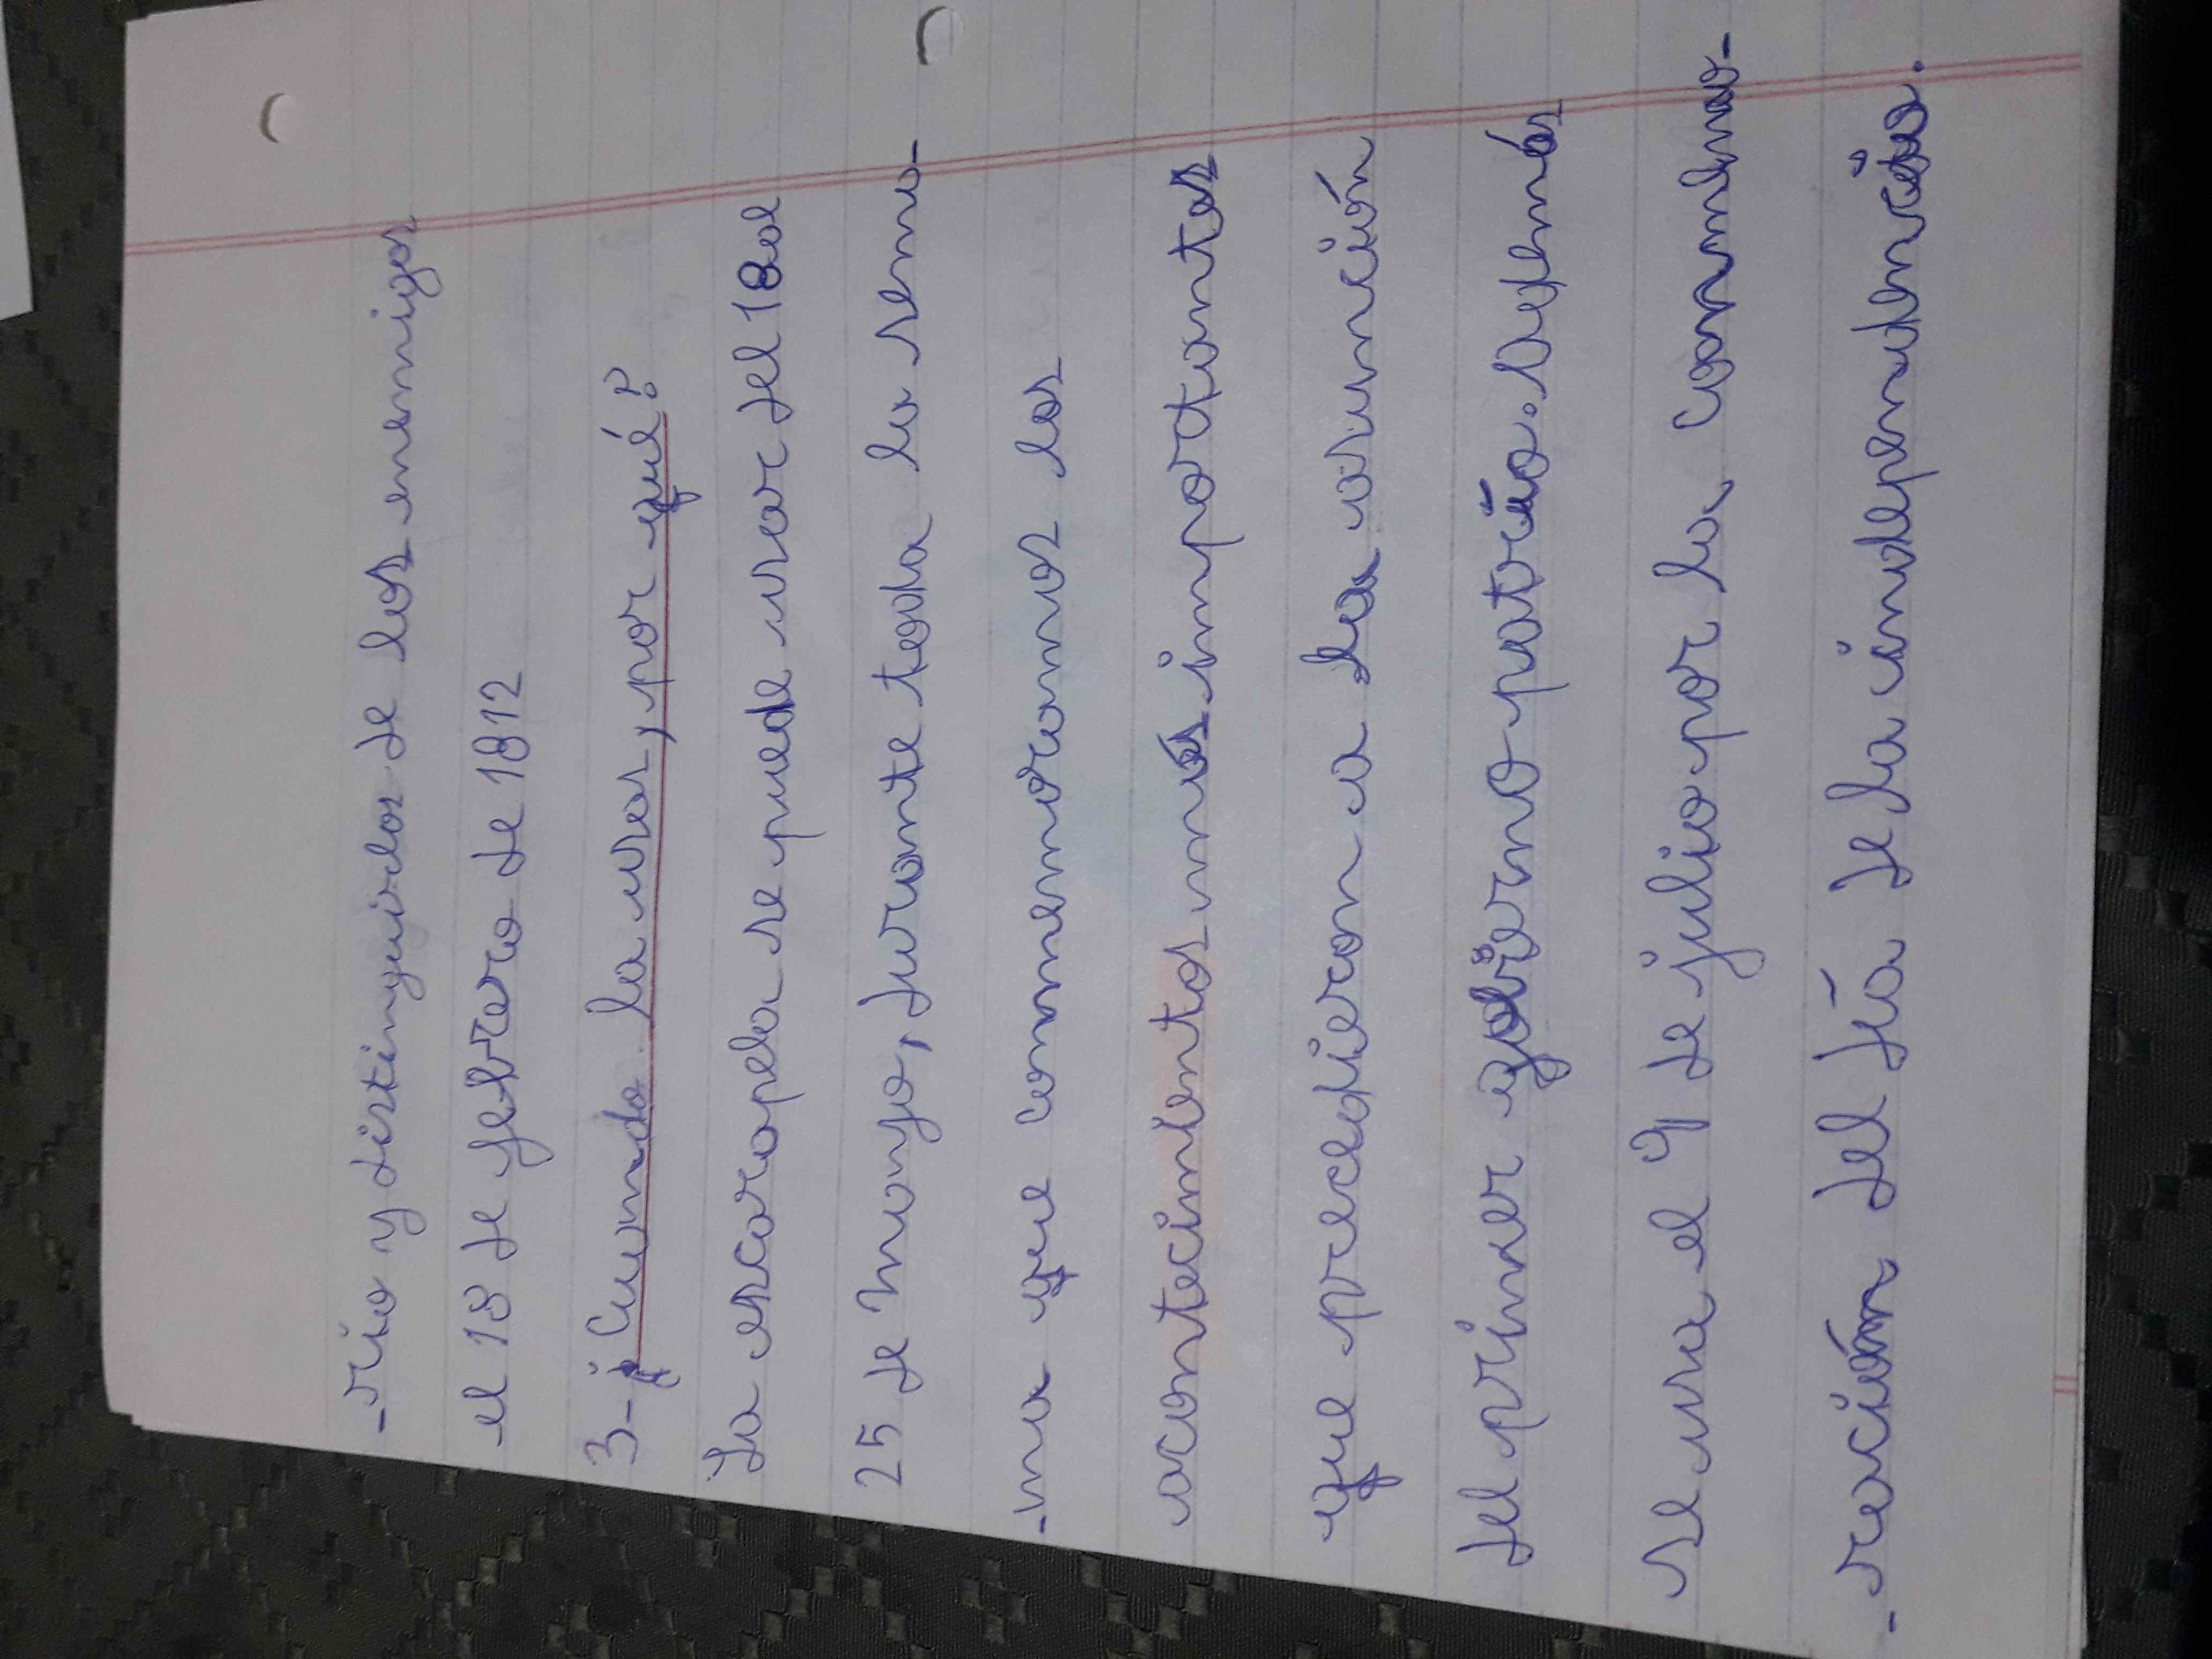 -rio y distinguirlos de los enemigos
el 18 de febrero de 1812
3-¿Cuando la usas, por qué?
La escarapela se puede usar del 18 al
25 de Mayo, durante toda la sema-
-na que conmemoramos los
acontecimientos más importantes
que precedieron a la asunción
del primer gobierno patrio. Además
se usa el 9 de julio por la conmemo-
-ración del día de la independencia.